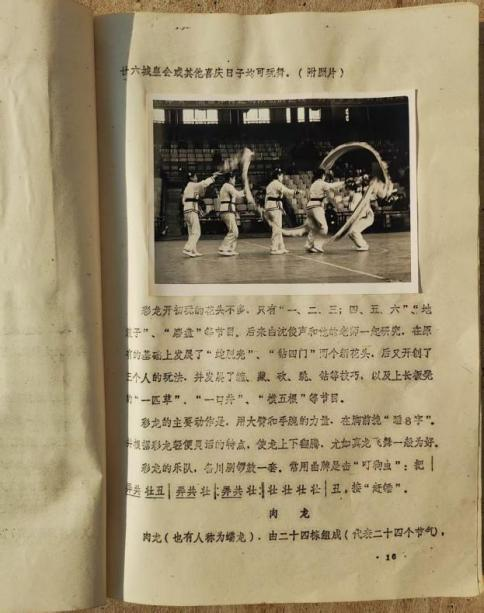 廿六城皇会或其他喜庆日子均可玩舞。(附图片)
彩龙开初玩的花头不多,只有“一、二、三;四、五、六”“地
子”、“磨盘”等节目。后来由沈俊声和他的老师一起研究,在原
有的基础上发展了“蛇脱壳”、“钻四门”两个新花头,后又开创了
三个人的玩法,并发展了藏、砍、跳、钻等技巧,以及上长板凳
的“一匹草”、“一口井”、“恨五根”等节目。
彩龙的主要动作是,用大臂和手腕的力量,在胸前挽“8字”。
并根据彩龙轻便灵活的特点,使龙上下翻腾,尤如真龙飞舞一般为好。
彩龙的乐队,各川剧锣鼓一套。常用曲牌是击“叮狗虫”:把
弄共 壮丑 弄共 壮 弄共 壮 壮 壮 壮 壮 丑,接“赶锤”。
肉 龙
肉龙(也有人称为蟠龙),由二十四栋组成(代表二十四个节气),
·16·